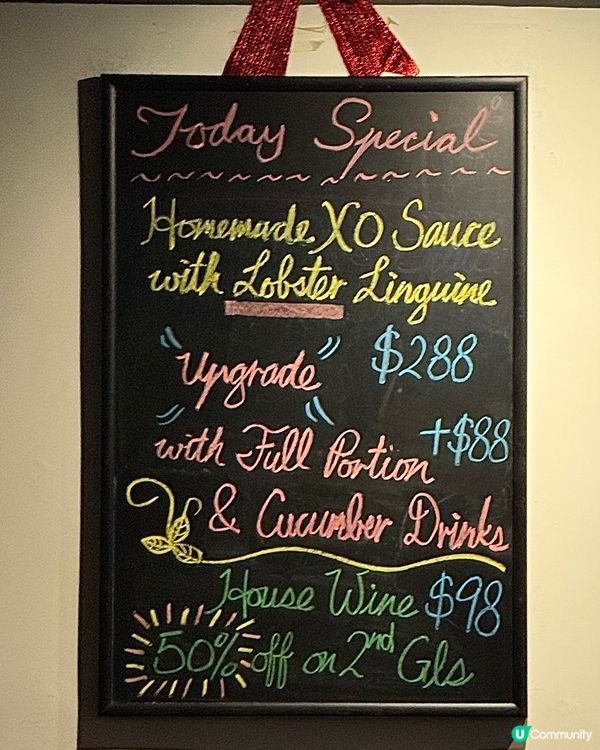 Today Special
Homemade XO Sauce
with Lobster Linguine
$288
"Upgrade"
+$88
"with Full Portion"
& Cucumber Drinks
House Wine $98
50% off on 2nd Gls
U Community